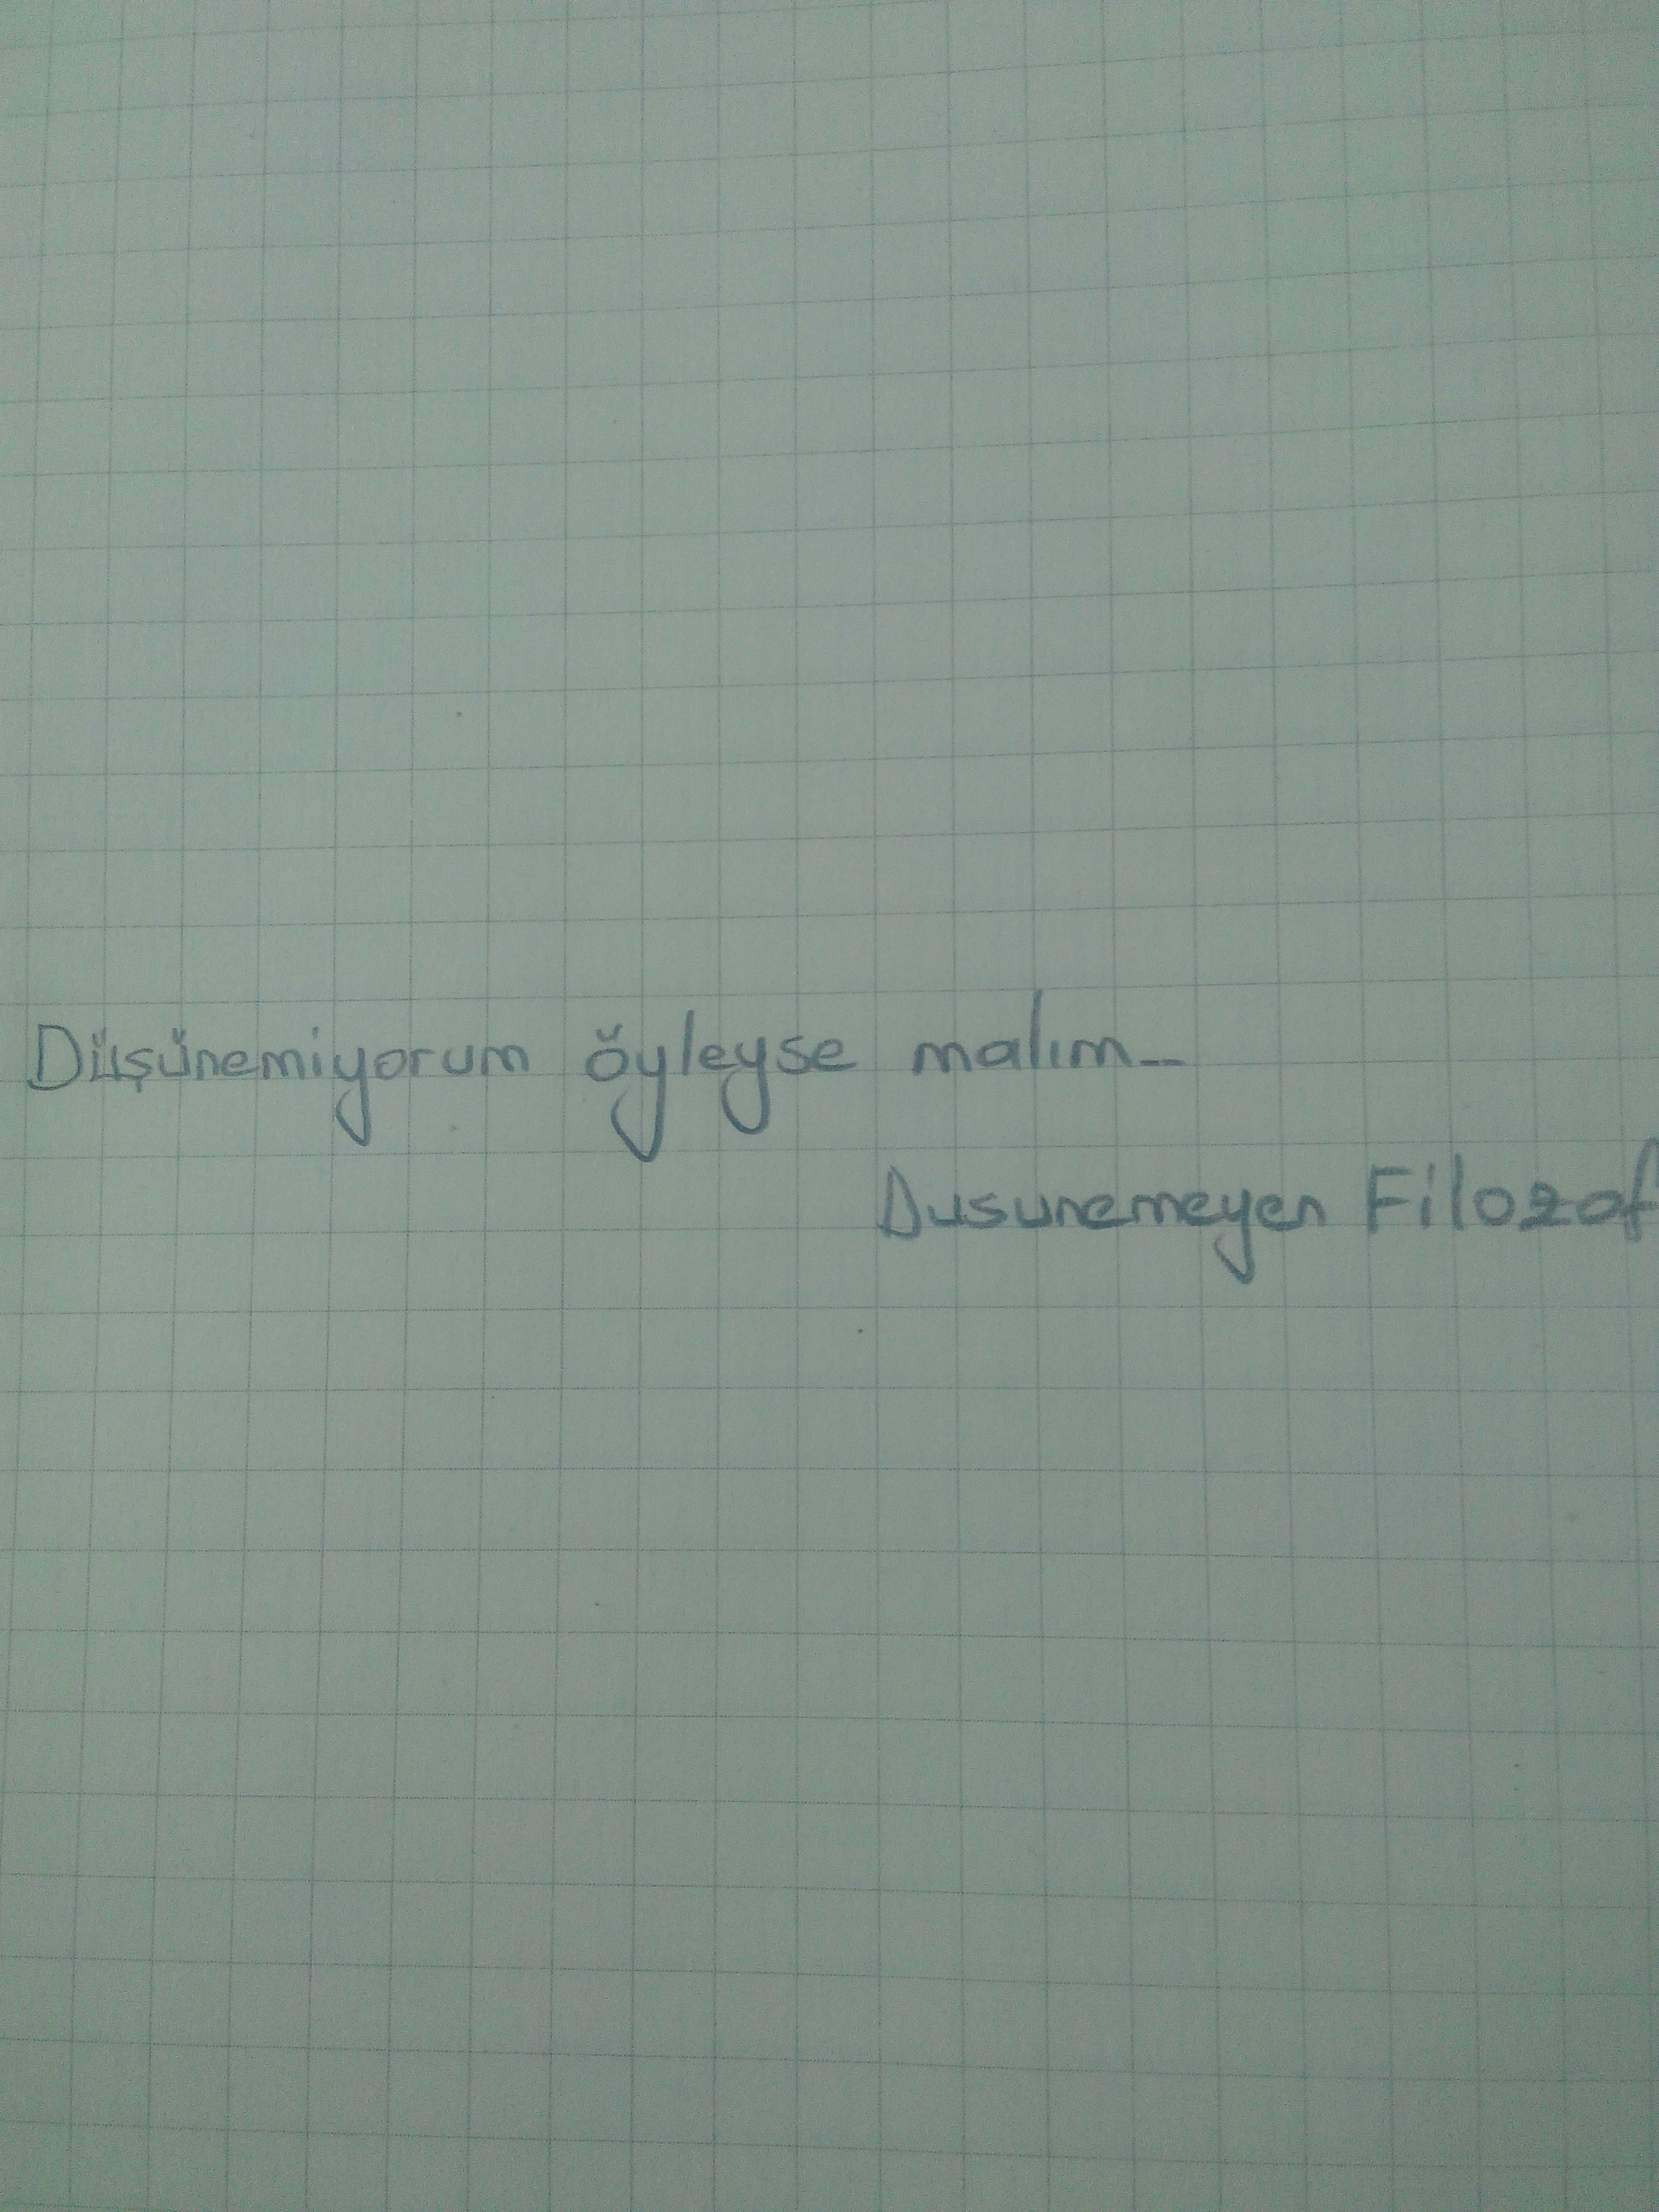 Düşünemiyorum öyleyse malım_
Dusunemeyen Filozof